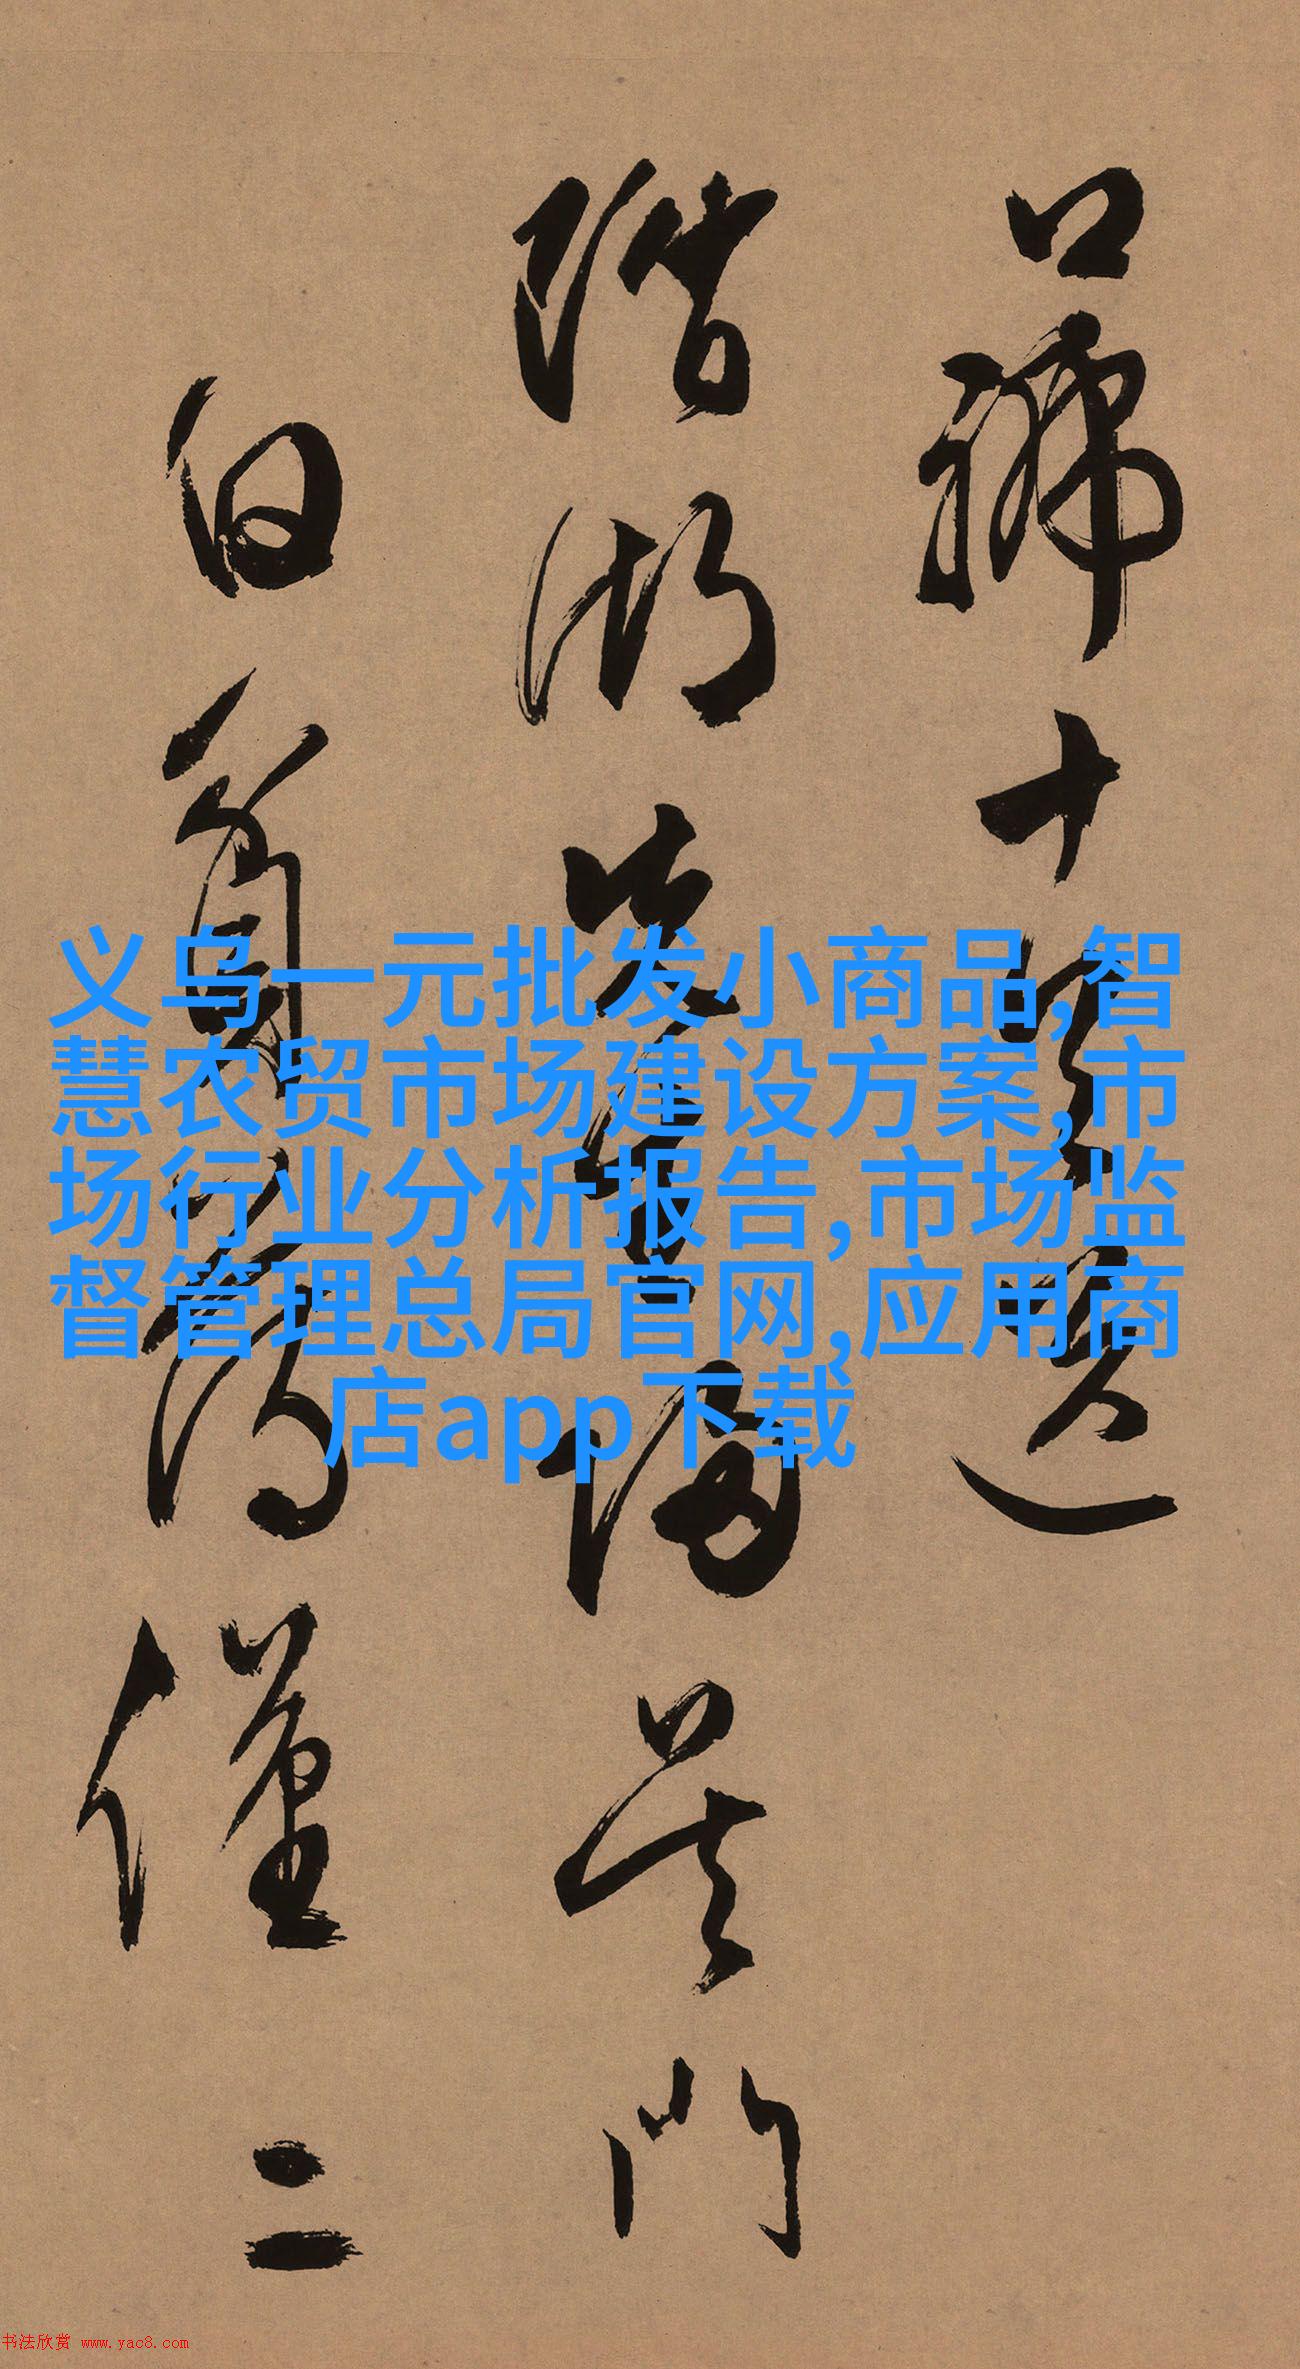 口號十章送
先生歸吴門
白 二
义乌一元批发小商品,智
慧农贸市场建设方案,市
场行业分析报告,市场监
督管理总局官网,应用商
店app下载
书法欣赏 www.yac8.com